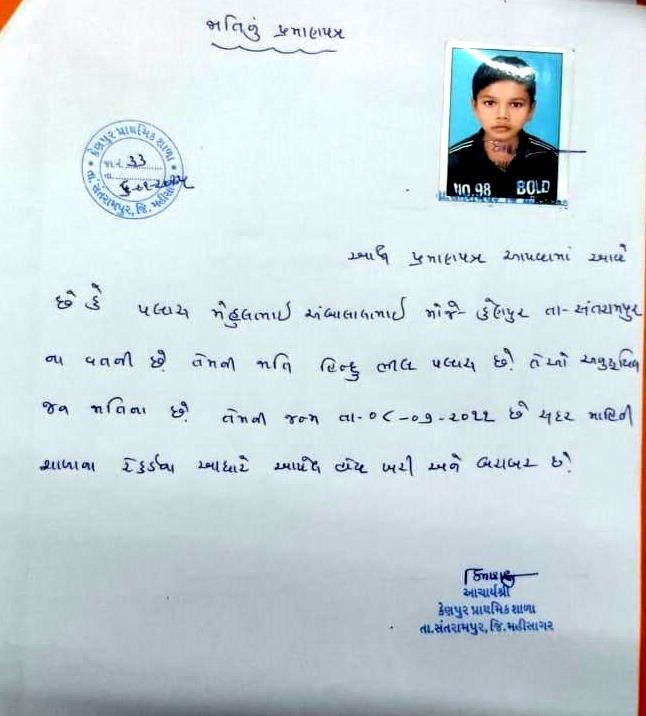 જાતિનું પ્રમાણપત્ર
કેણપુર પ્રાથમિક શાળા
જા.નં. 33
તા.
તા. સંતરામપુર, જિ. મહીસાગર
NO.98 BOLD
આથી પ્રમાણપત્ર આપવામાં આવે
છે કે પલાસ મેહુલભાઈ અંબાલાલભાઈ મોજે- કેણપુર તા- સંતરામપુર
ના વતની છે. તેમની જાતિ હિન્દુ ભીલ પલાસ છે. તેઓ અનુસૂચિત
જન જાતિના છે. તેમની જન્મ તા- છે સદર માહિતી
શાળાના રેકર્ડના આધારે આપેલ ખરી અને બરાબર છે.
આચાર્યશ્રી
કેણપુર પ્રાથમિક શાળા
તા.સંતરામપુર, જિ.મહીસાગર